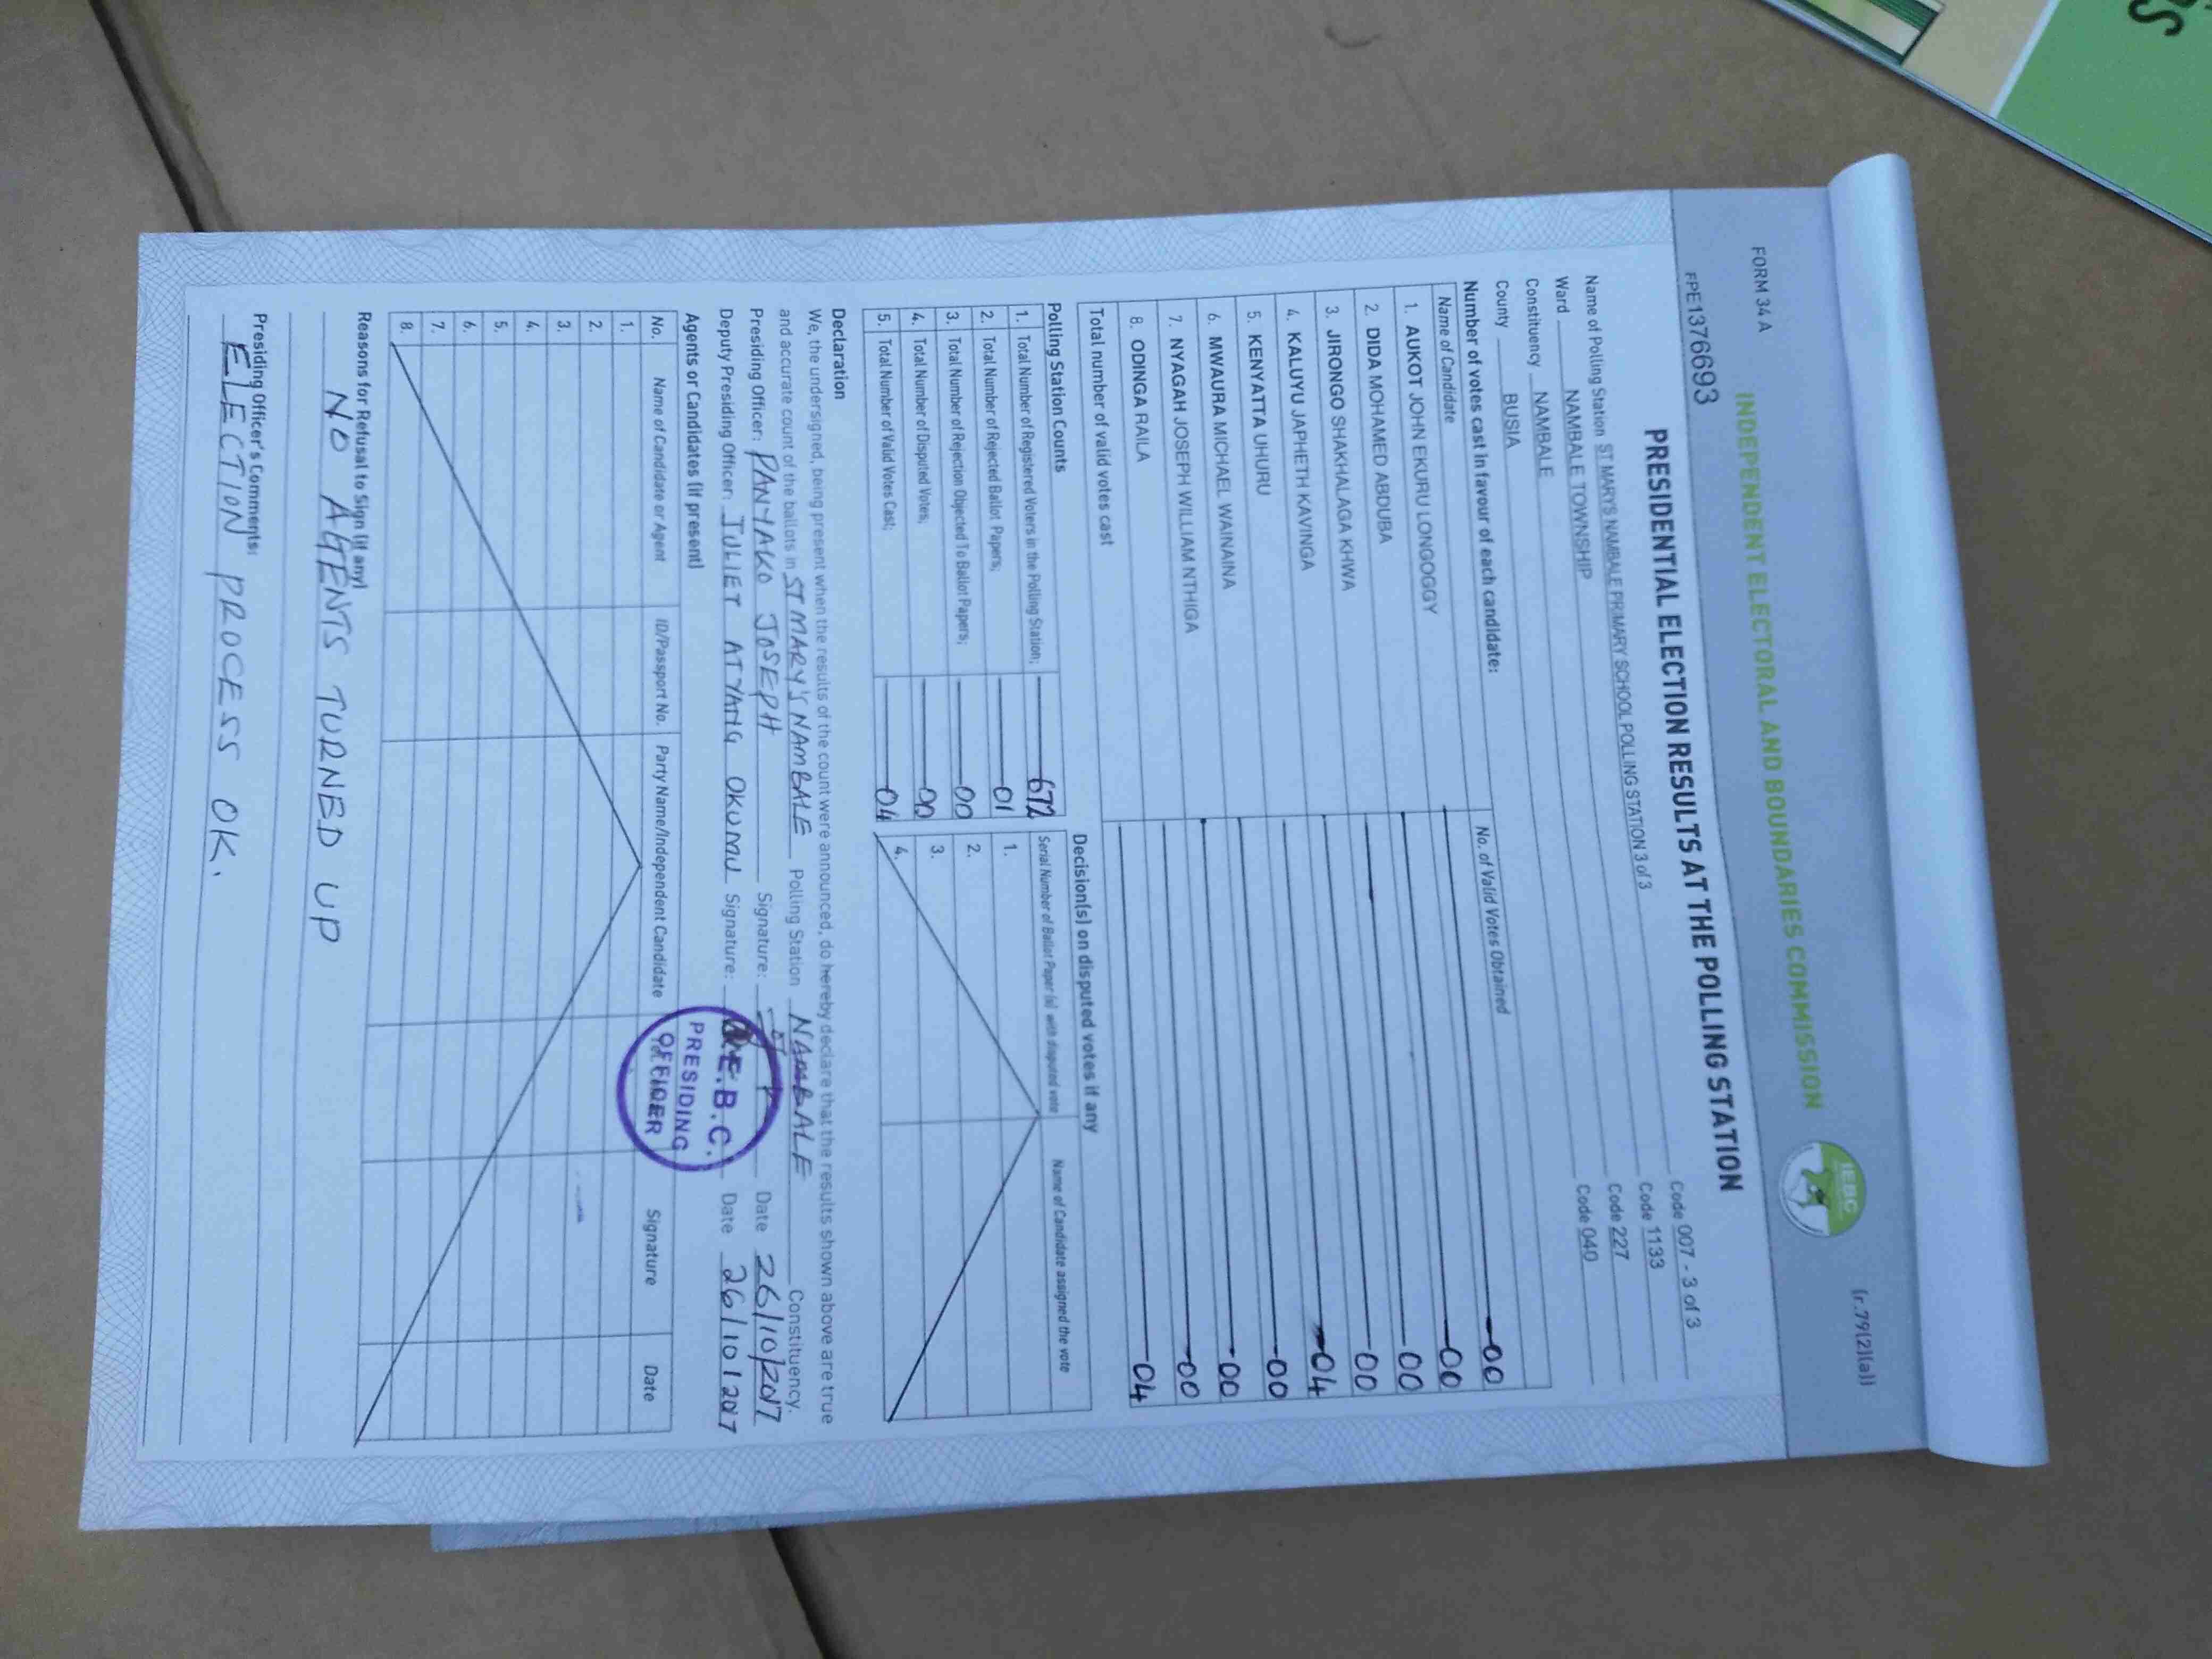 FORM 34 A
(r.79(2)(a))
INDEPENDENT ELECTORAL AND BOUNDARIES COMMISSION
IEBC
FPE1376693
PRESIDENTIAL ELECTION RESULTS AT THE POLLING STATION
Name of Polling Station ST MARY'S NAMBALE PRIMARY SCHOOL POLLING STATION 3 of 3 Code 007 - 3 of 3
Ward NAMBALE TOWNSHIP Code 1133
Constituency NAMBALE Code 227
County BUSIA Code 040
Number of votes cast in favour of each candidate:
Name of Candidate No. of Valid Votes Obtained
1. AUKOT JOHN EKURU LONGOGGY 00
2. DIDA MOHAMED ABDUBA 00
3. JIRONGO SHAKHALAGA KHWA 00
4. KALUYU JAPHETH KAVINGA 00
5. KENYATTA UHURU 04
6. MWAURA MICHAEL WAINAINA 00
7. NYAGAH JOSEPH WILLIAM NTHIGA 00
8. ODINGA RAILA 00
Total number of valid votes cast 04
Polling Station Counts
1. Total Number of Registered Voters in the Polling Station; 672
2. Total Number of Rejected Ballot Papers; 01
3. Total Number of Rejection Objected To Ballot Papers; 00
4. Total Number of Disputed Votes; 00
5. Total Number of Valid Votes Cast; 04
Decision(s) on disputed votes if any
Serial Number of Ballot Paper (s) with disputed vote Name of Candidate assigned the vote
1.
2.
3.
4.
Declaration
We, the undersigned, being present when the results of the count were announced, do hereby declare that the results shown above are true
and accurate count of the ballots in ST MARY'S NAMBALE Polling Station NAMBALE Constituency.
Presiding Officer: PANYAKO JOSEPH Signature: Date 26/10/2017
Deputy Presiding Officer: JULIET ATYANG OKUMU Signature: Date 26/10/2017
I.E.B.C.
PRESIDING
OFFICER
Agents or Candidates (if present)
No. Name of Candidate or Agent ID/Passport No. Party Name/Independent Candidate Signature Date
1.
2.
3.
4.
5.
6.
7.
8.
Reasons for Refusal to Sign (if any)
NO AGENTS TURNED UP
Presiding Officer's Comments:
ELECTION PROCESS OK.